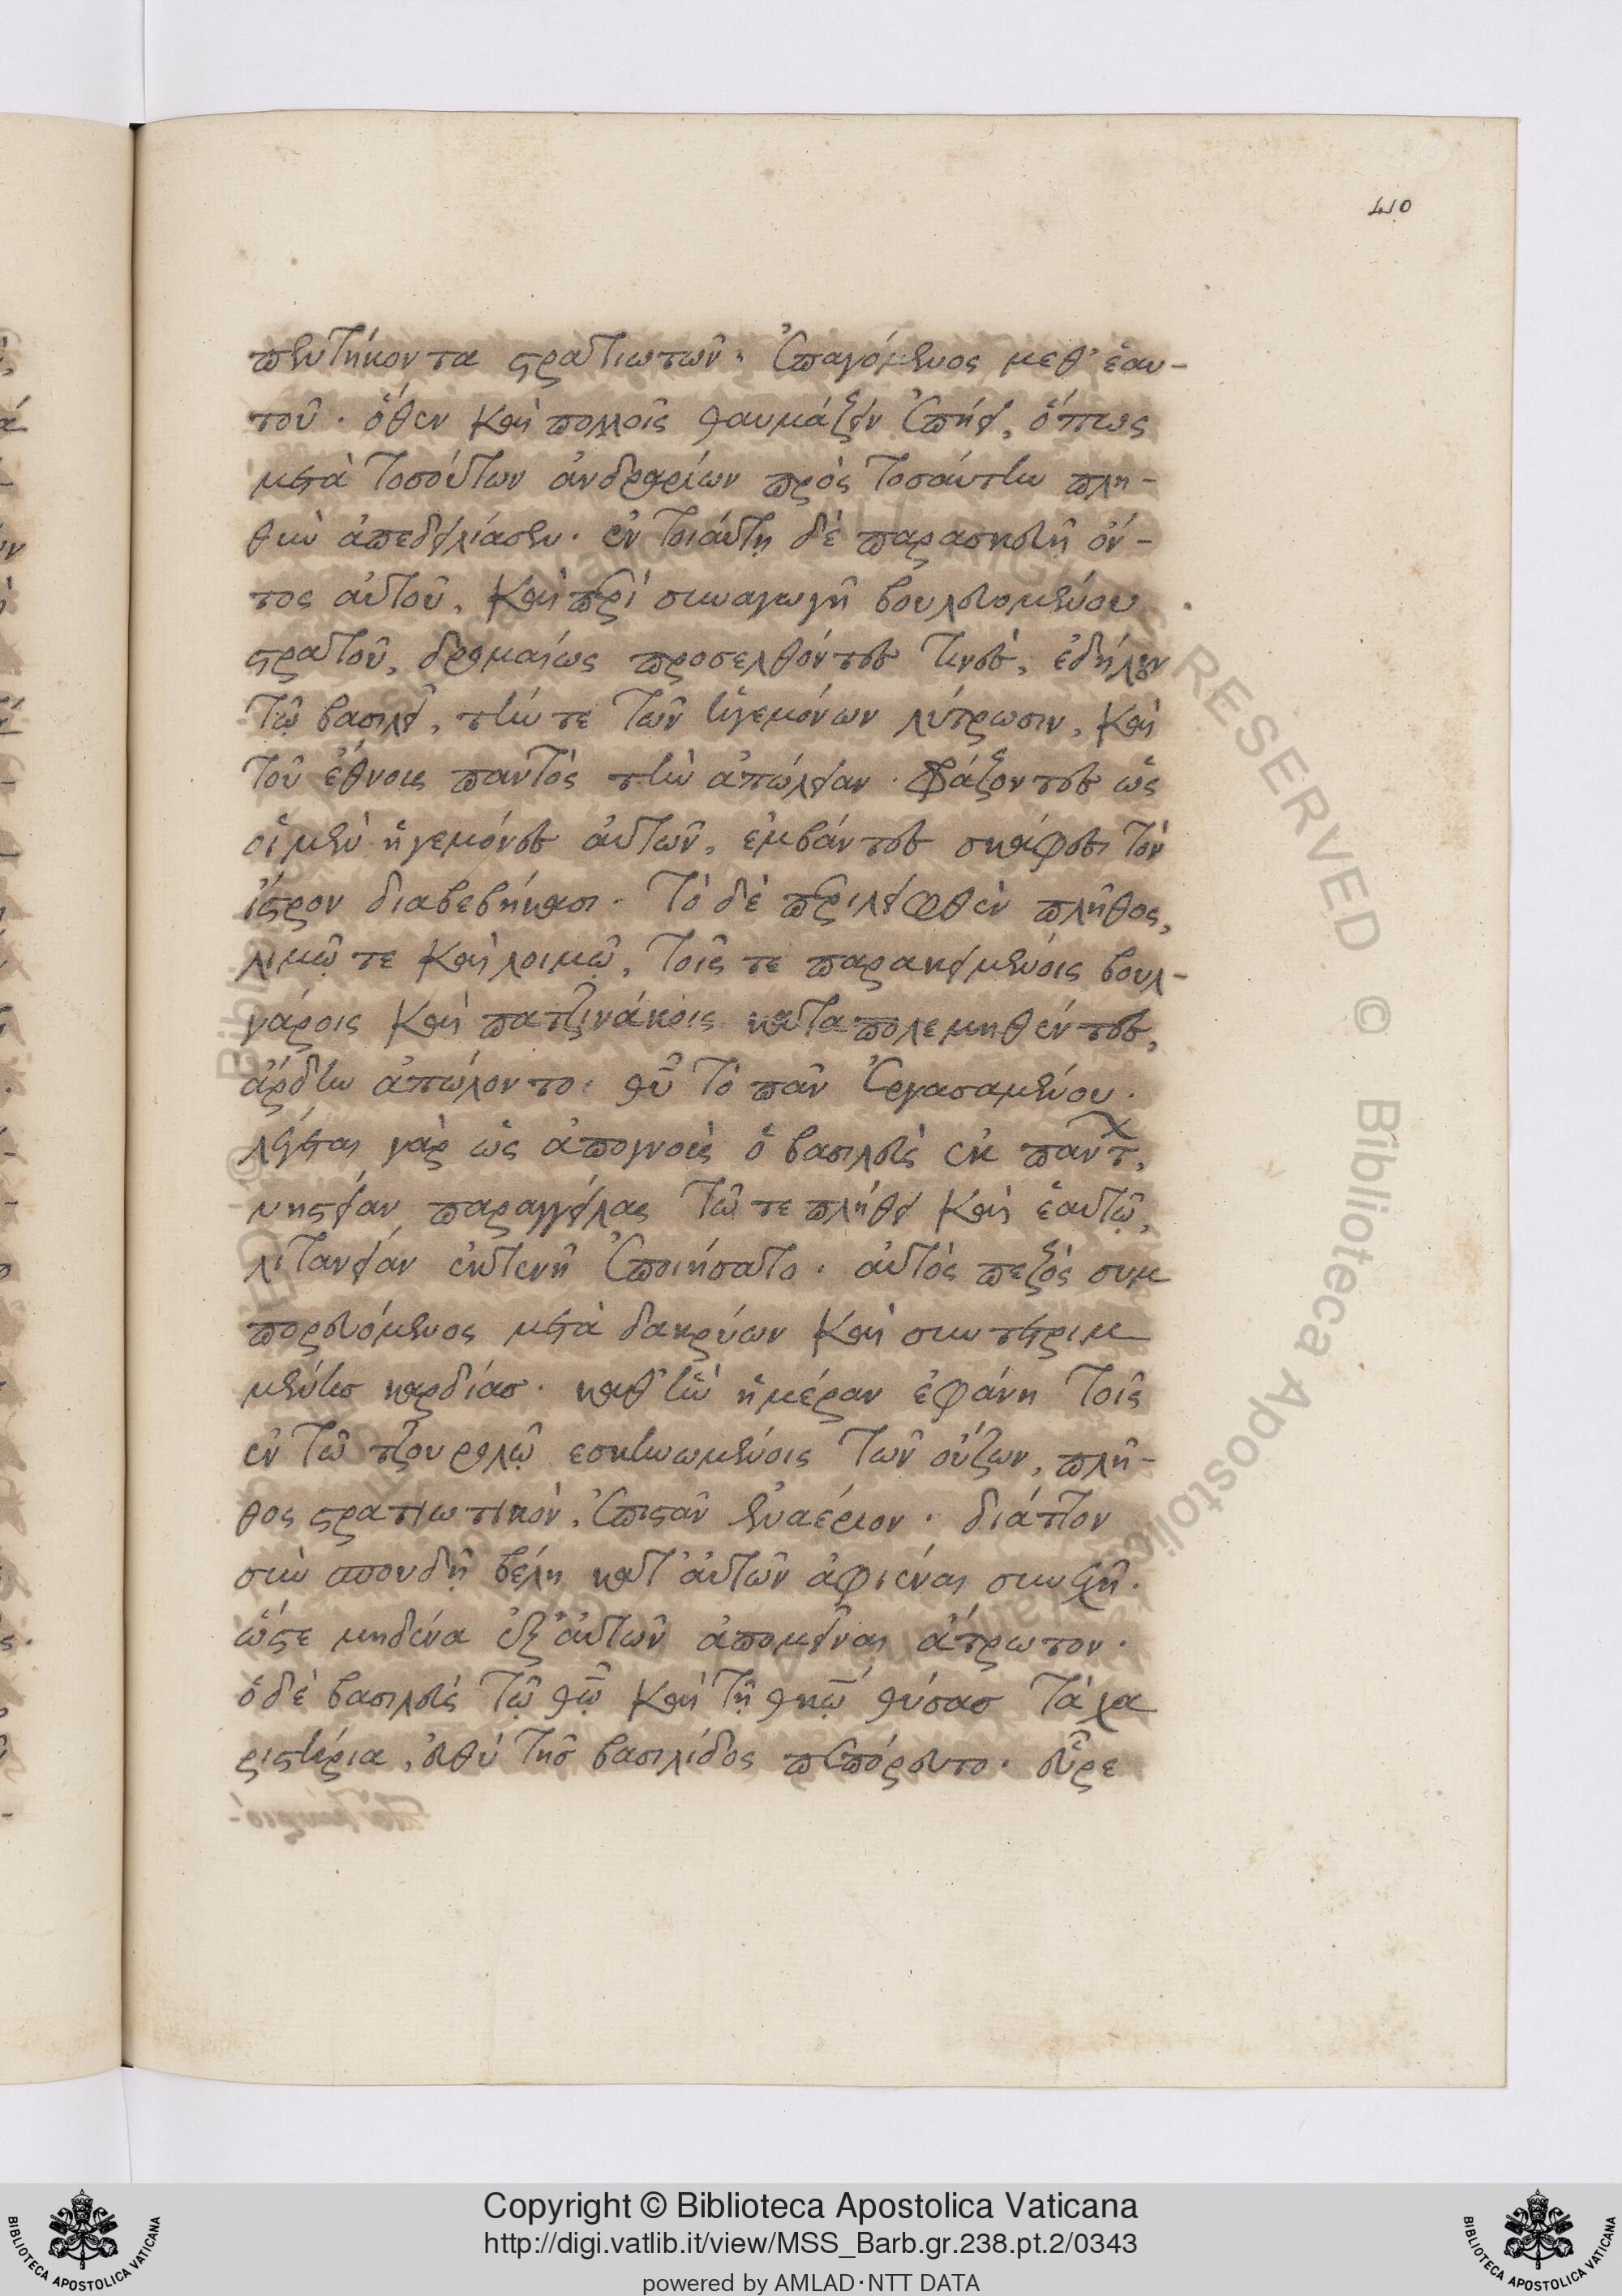 410
πεντήκοντα στρατιωτῶν, ἐπαγόμενος μεθ' ἑαυ-
τοῦ. ὅθεν καὶ πολλοῖς θαυμάζειν ἐπήει, ὅπως
μετὰ τοσούτων ἀνδραρίων πρὸς τοσαύτην πλη-
θὺν ἀπεδειλίασεν. ἐν τοιαύτῃ δὲ παρασκευῇ ὄν-
τος αὐτοῦ, καὶ περὶ συναγωγῆ βουλευομένου
στρατοῦ, δρομαίως προσελθόντες τινὲς, ἐδήλουν
τῷ βασιλεῖ, τήν τε τῶν ἡγεμόνων λύτρωσιν, καὶ
τοῦ ἔθνους παντὸς τὴν ἀπώλειαν. φράζοντες ὡς
οἱ μὲν ἡγεμόνες αὐτῶν, ἐμβάντες σκάφεσι τὸν
ἴστρον διαβεβήκασι. τὸ δὲ περιλειφθὲν πλῆθος,
λιμῷ τε καὶ λοιμῷ, τοῖς τε παρακειμένοις βουλ-
γάροις καὶ πατζινάκοις καταπολεμηθέντες,
ἄρδην ἀπώλοντο. θῦ τὸ πᾶν ἐργασαμένου.
λέγεται γὰρ ὡς ἀπογνοὺς ὁ βασιλεὺς ἐκ παντ,
νηστείαν παραγγείλας τῶ τε πλήθει καὶ ἑαυτῷ,
λιτανείαν ἐκτενῆ ἐποιήσατο. αὐτὸς πεζὸς συμ
πορευόμενος μετὰ δακρύων καὶ συντετριμ
μένης καρδίας. καθ' ἣν ἡμέραν ἐφάνη τοῖς
ἐν τῶ τζουρολῷ ἐσκηνωμένοις τῶν οὔζων, πλῆ-
θος στρατιωτικὸν, ἐπιστᾶν ἐναέριον. διάττον
σὺν σπουδῇ βέλη κατ' αὐτῶν ἀφιέναι συνεχῆ.
ὥστε μηδένα ἐξ αὐτῶν ἀπομεῖναι ἄτρωτον.
ὁ δὲ βασιλεὺς τῷ θῶ καὶ τῇ θκῶ θύσας τὰ χα
ριστήρια, εὐθὺ τῆς βασιλίδος ἐπορεύετο. εὗρε
Copyright © Biblioteca Apostolica Vaticana
http://digi.vatlib.it/view/MSS_Barb.gr.238.pt.2/0343
powered by AMLAD·NTT DATA
BIBLIOTECA APOSTOLICA VATICANA
BIBLIOTECA APOSTOLICA VATICANA